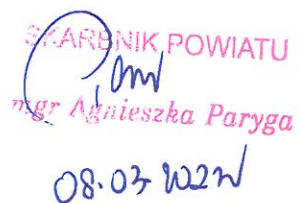 SKARBNIK POWIATU
mgr Agnieszka Paryga
08.03.2022